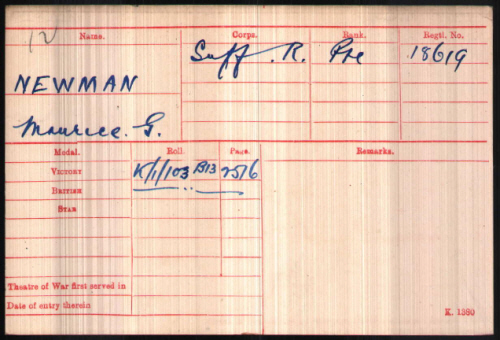 12
Name. Corps. Rank. Regtl. No.
NEWMAN Suff. R. Pte 18619
Maurice. G.
Medal. Roll. Page. Remarks.
VICTORY K/1/103 B13 2516
BRITISH
STAR
Theatre of War first served in
Date of entry therein
K. 1380